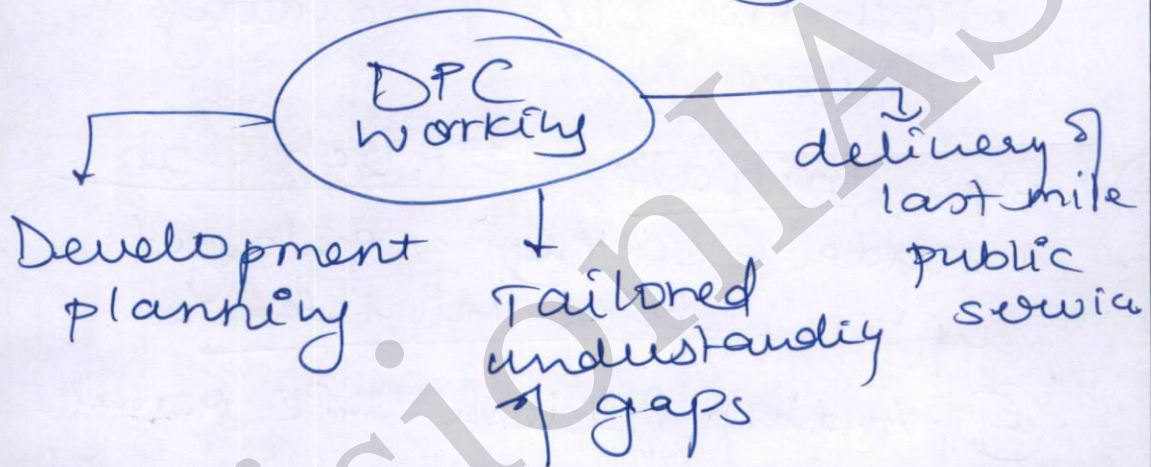 DPC
working
Development
planning
Tailored
understanding
gaps
delivery of
last mile
public
service
VisionIAS